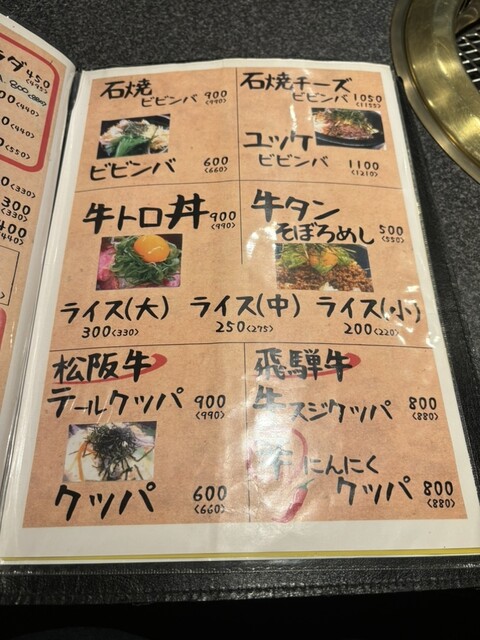 ラダ 450
<495>
800 <880>
00 <440>
0 <440>
0 <550>
0 <330>
300
<330>
400
<440>
石焼
ビビンバ 900
<990>
ビビンバ 600
<660>
石焼チーズ
ビビンバ 1050
<1155>
ユッケ
ビビンバ 1100
<1210>
牛トロ丼 900
<990>
牛タン
そぼろめし 500
<550>
ライス(大) ライス(中) ライス(小)
300<330> 250<275> 200<220>
松阪牛
テールクッパ 900
<990>
クッパ 600
<660>
飛騨牛
牛スジクッパ 800
<880>
にんにく
クッパ 800
<880>